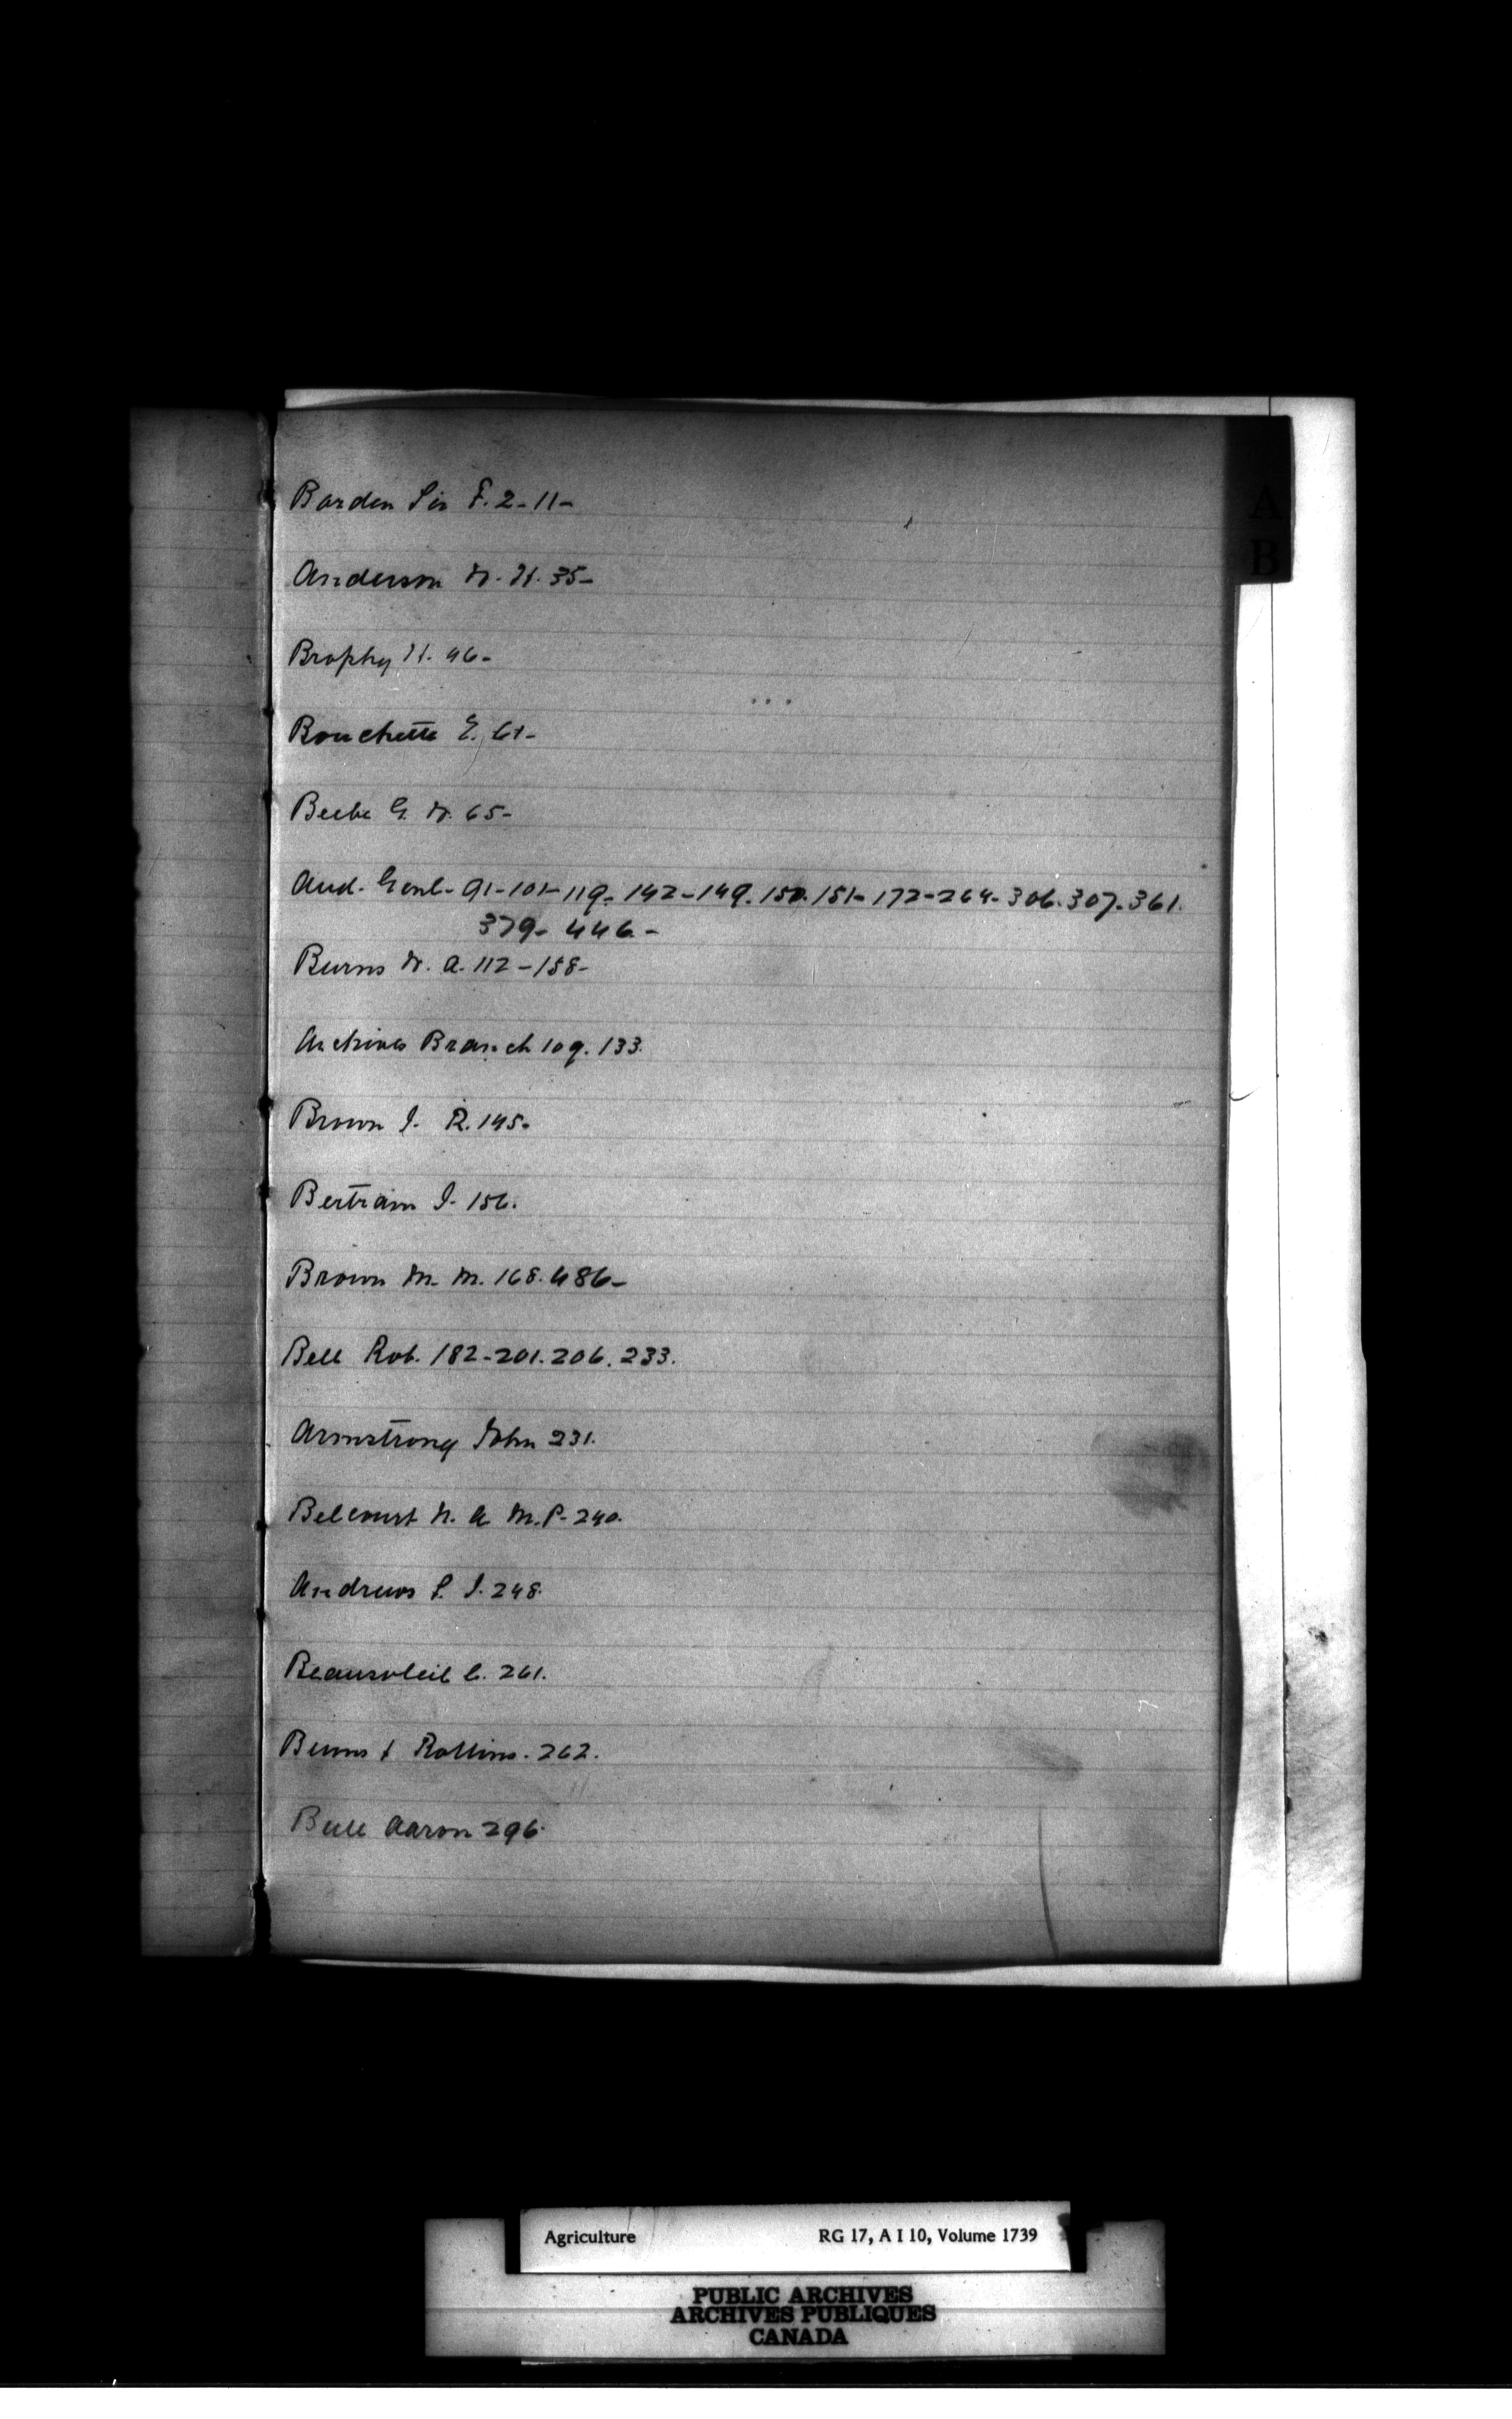 A
B
Borden Sir F. 2-11-
Anderson W. H. 35-
Brophy H. 46-
Bouchette E. 61-
Beebe G. W. 65-
Aud. Genl- 91-101-119-142-149.150.151-172-264-306.307-361.
379- 446-
Burns W. A. 112-158-
Archives Branch 109. 133.
Brown J. R. 145-
Bertram J. 156.
Brown M. M. 168.486-
Bell Rob. 182-201.206.233.
Armstrong John 231.
Belcourt N. A. M.P- 240.
Andrews S. J. 248.
Beausoleil C. 261.
Binns & Rollins. 262.
Bull Aaron 296.
Agriculture RG 17, A I 10, Volume 1739
PUBLIC ARCHIVES
ARCHIVES PUBLIQUES
CANADA